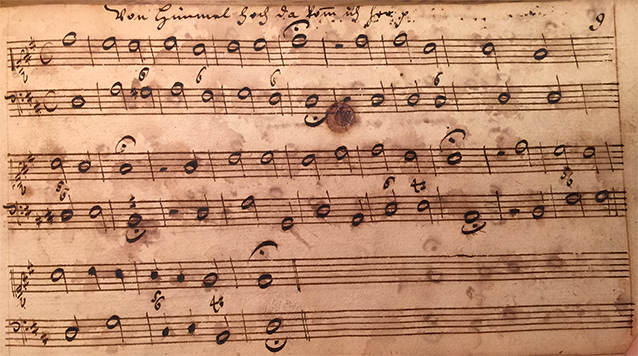 Von Himmel hoch da kom̄ ich her p
9
6 6 6
6
6 6 4
6
5
6
5
6
5 4